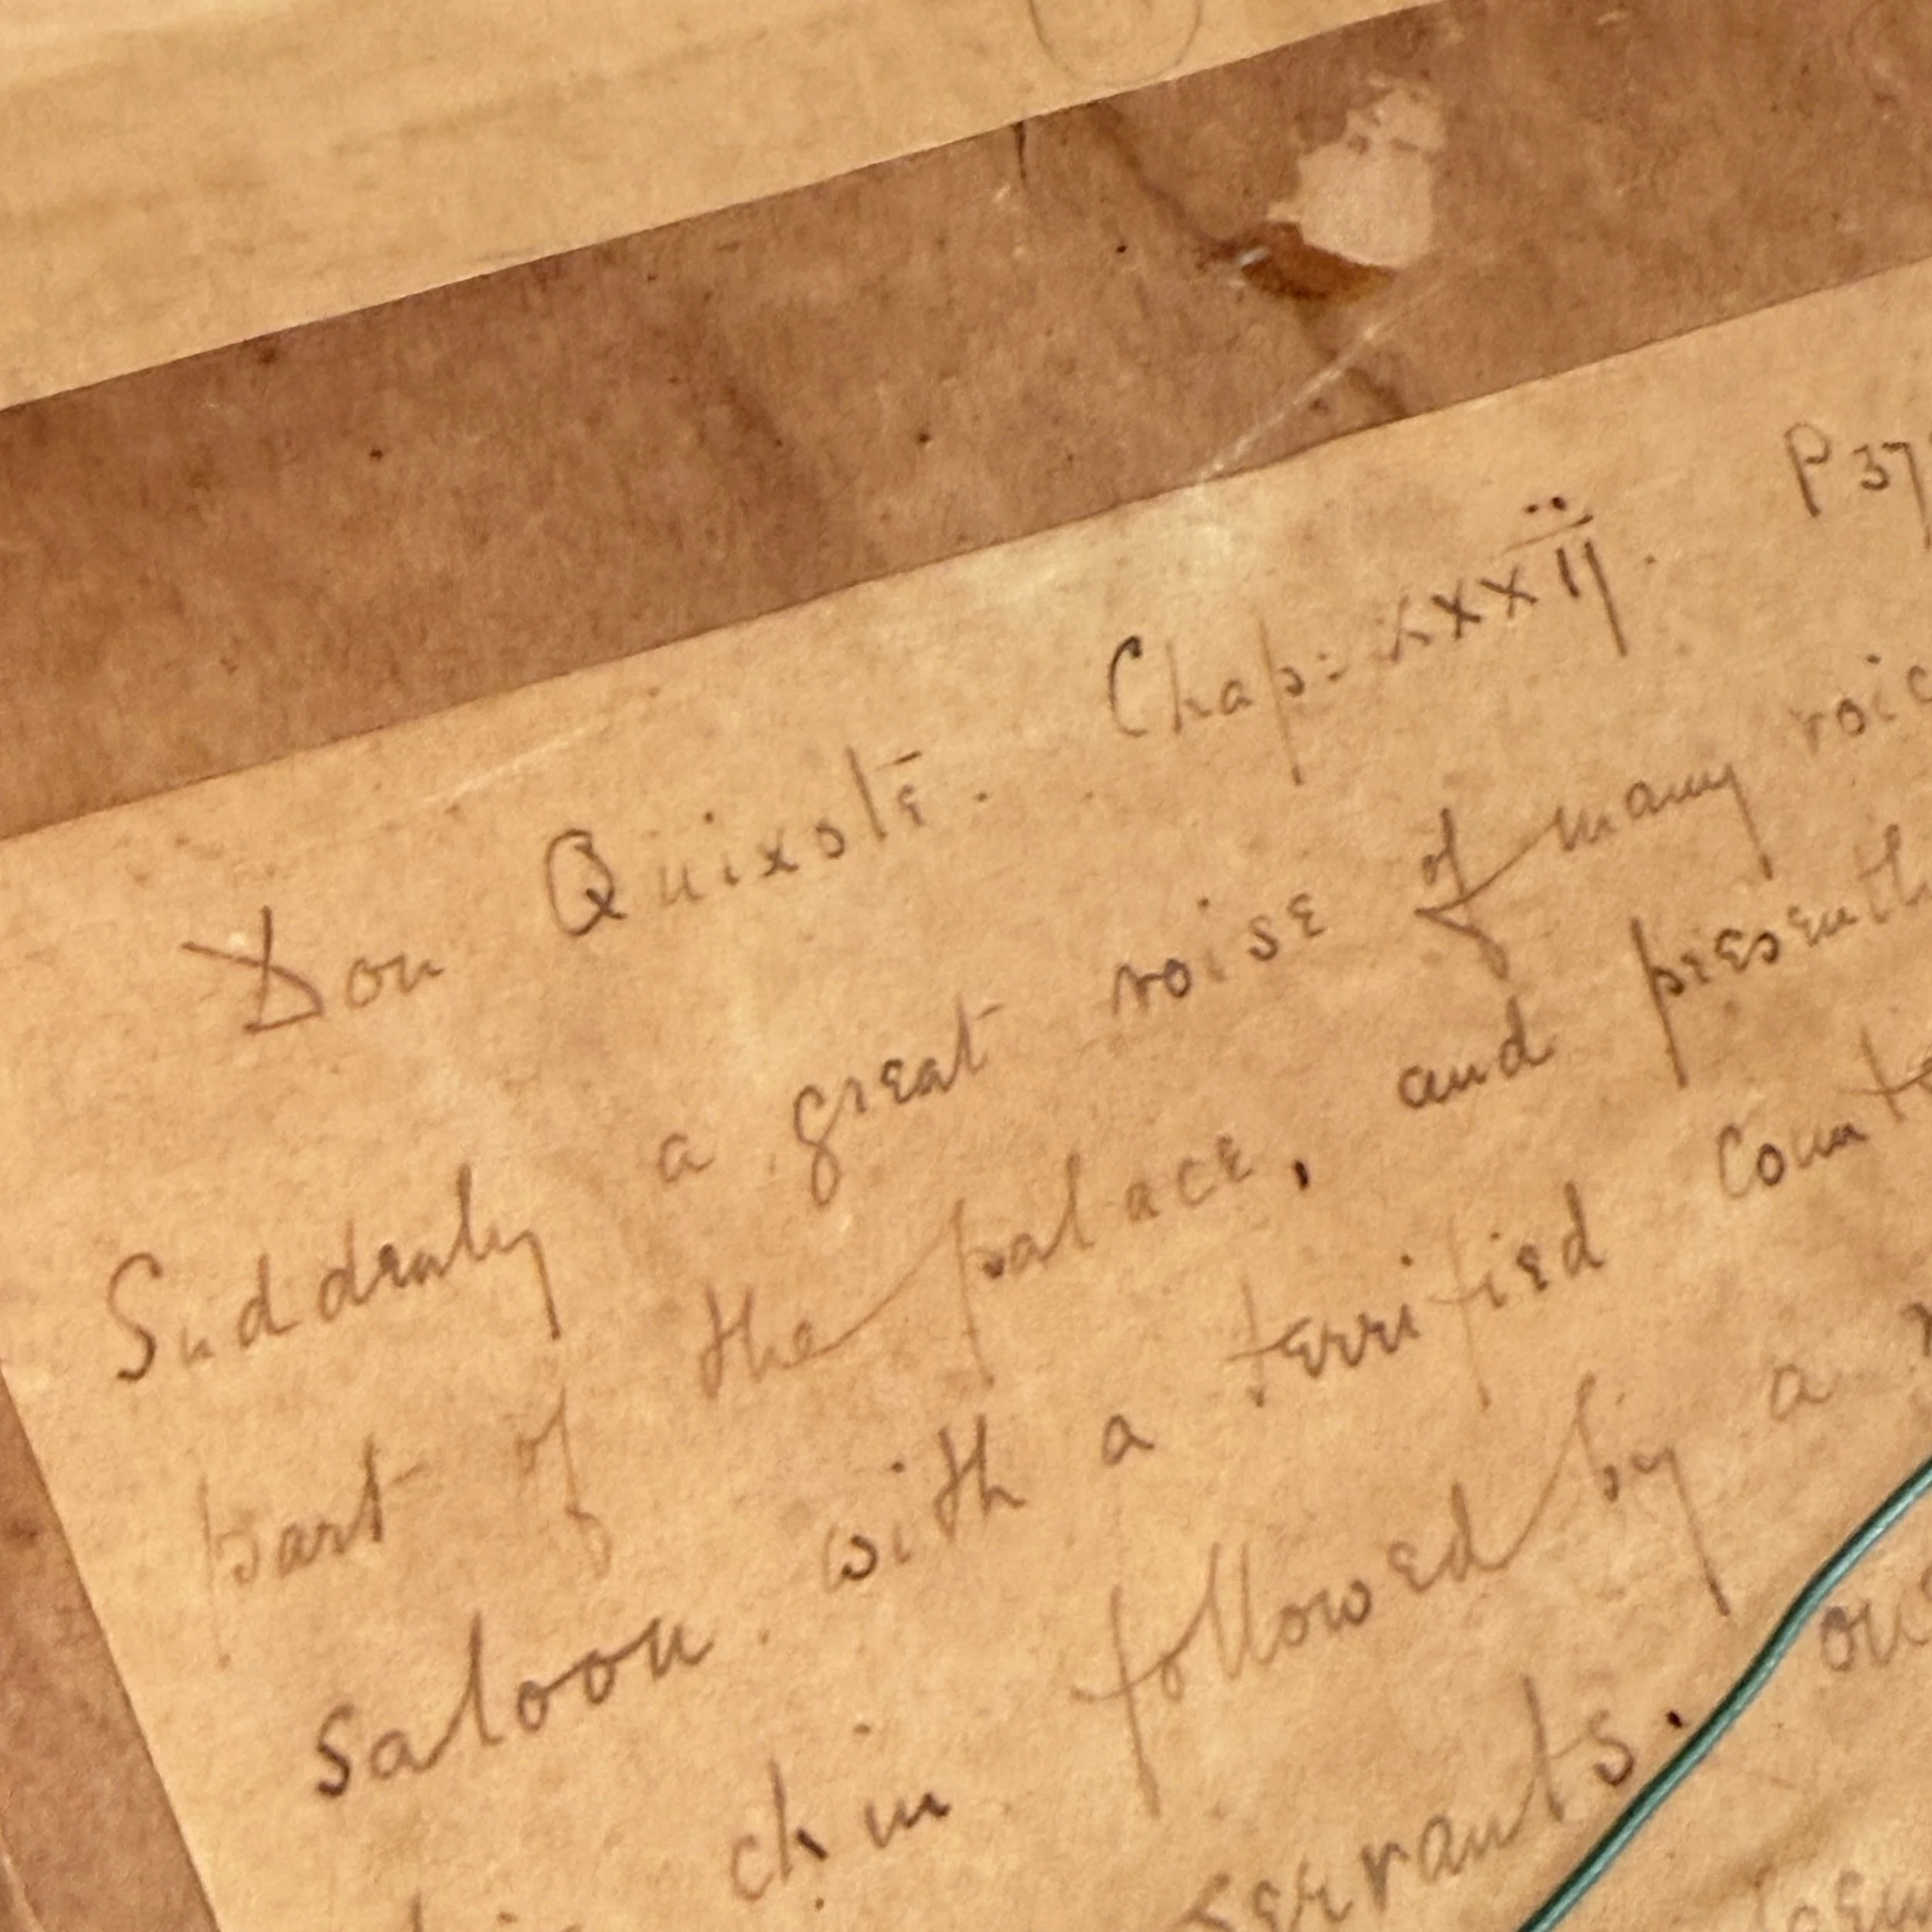 Don Quixote. Chap: xxxii. P 37
Suddenly a great noise of many voic
part of the palace, and presentl
saloon with a terrified counte
chin followed by a
servants. ou